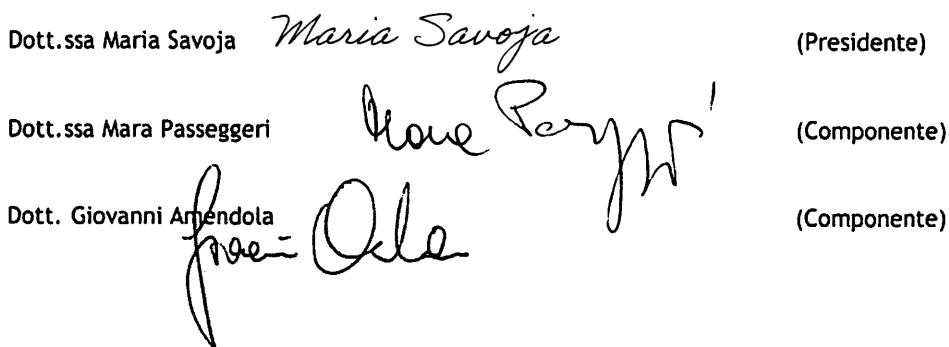 Dott.ssa Maria Savoja Maria Savoja (Presidente)
Dott.ssa Mara Passeggeri (Componente)
Dott. Giovanni Amendola (Componente)